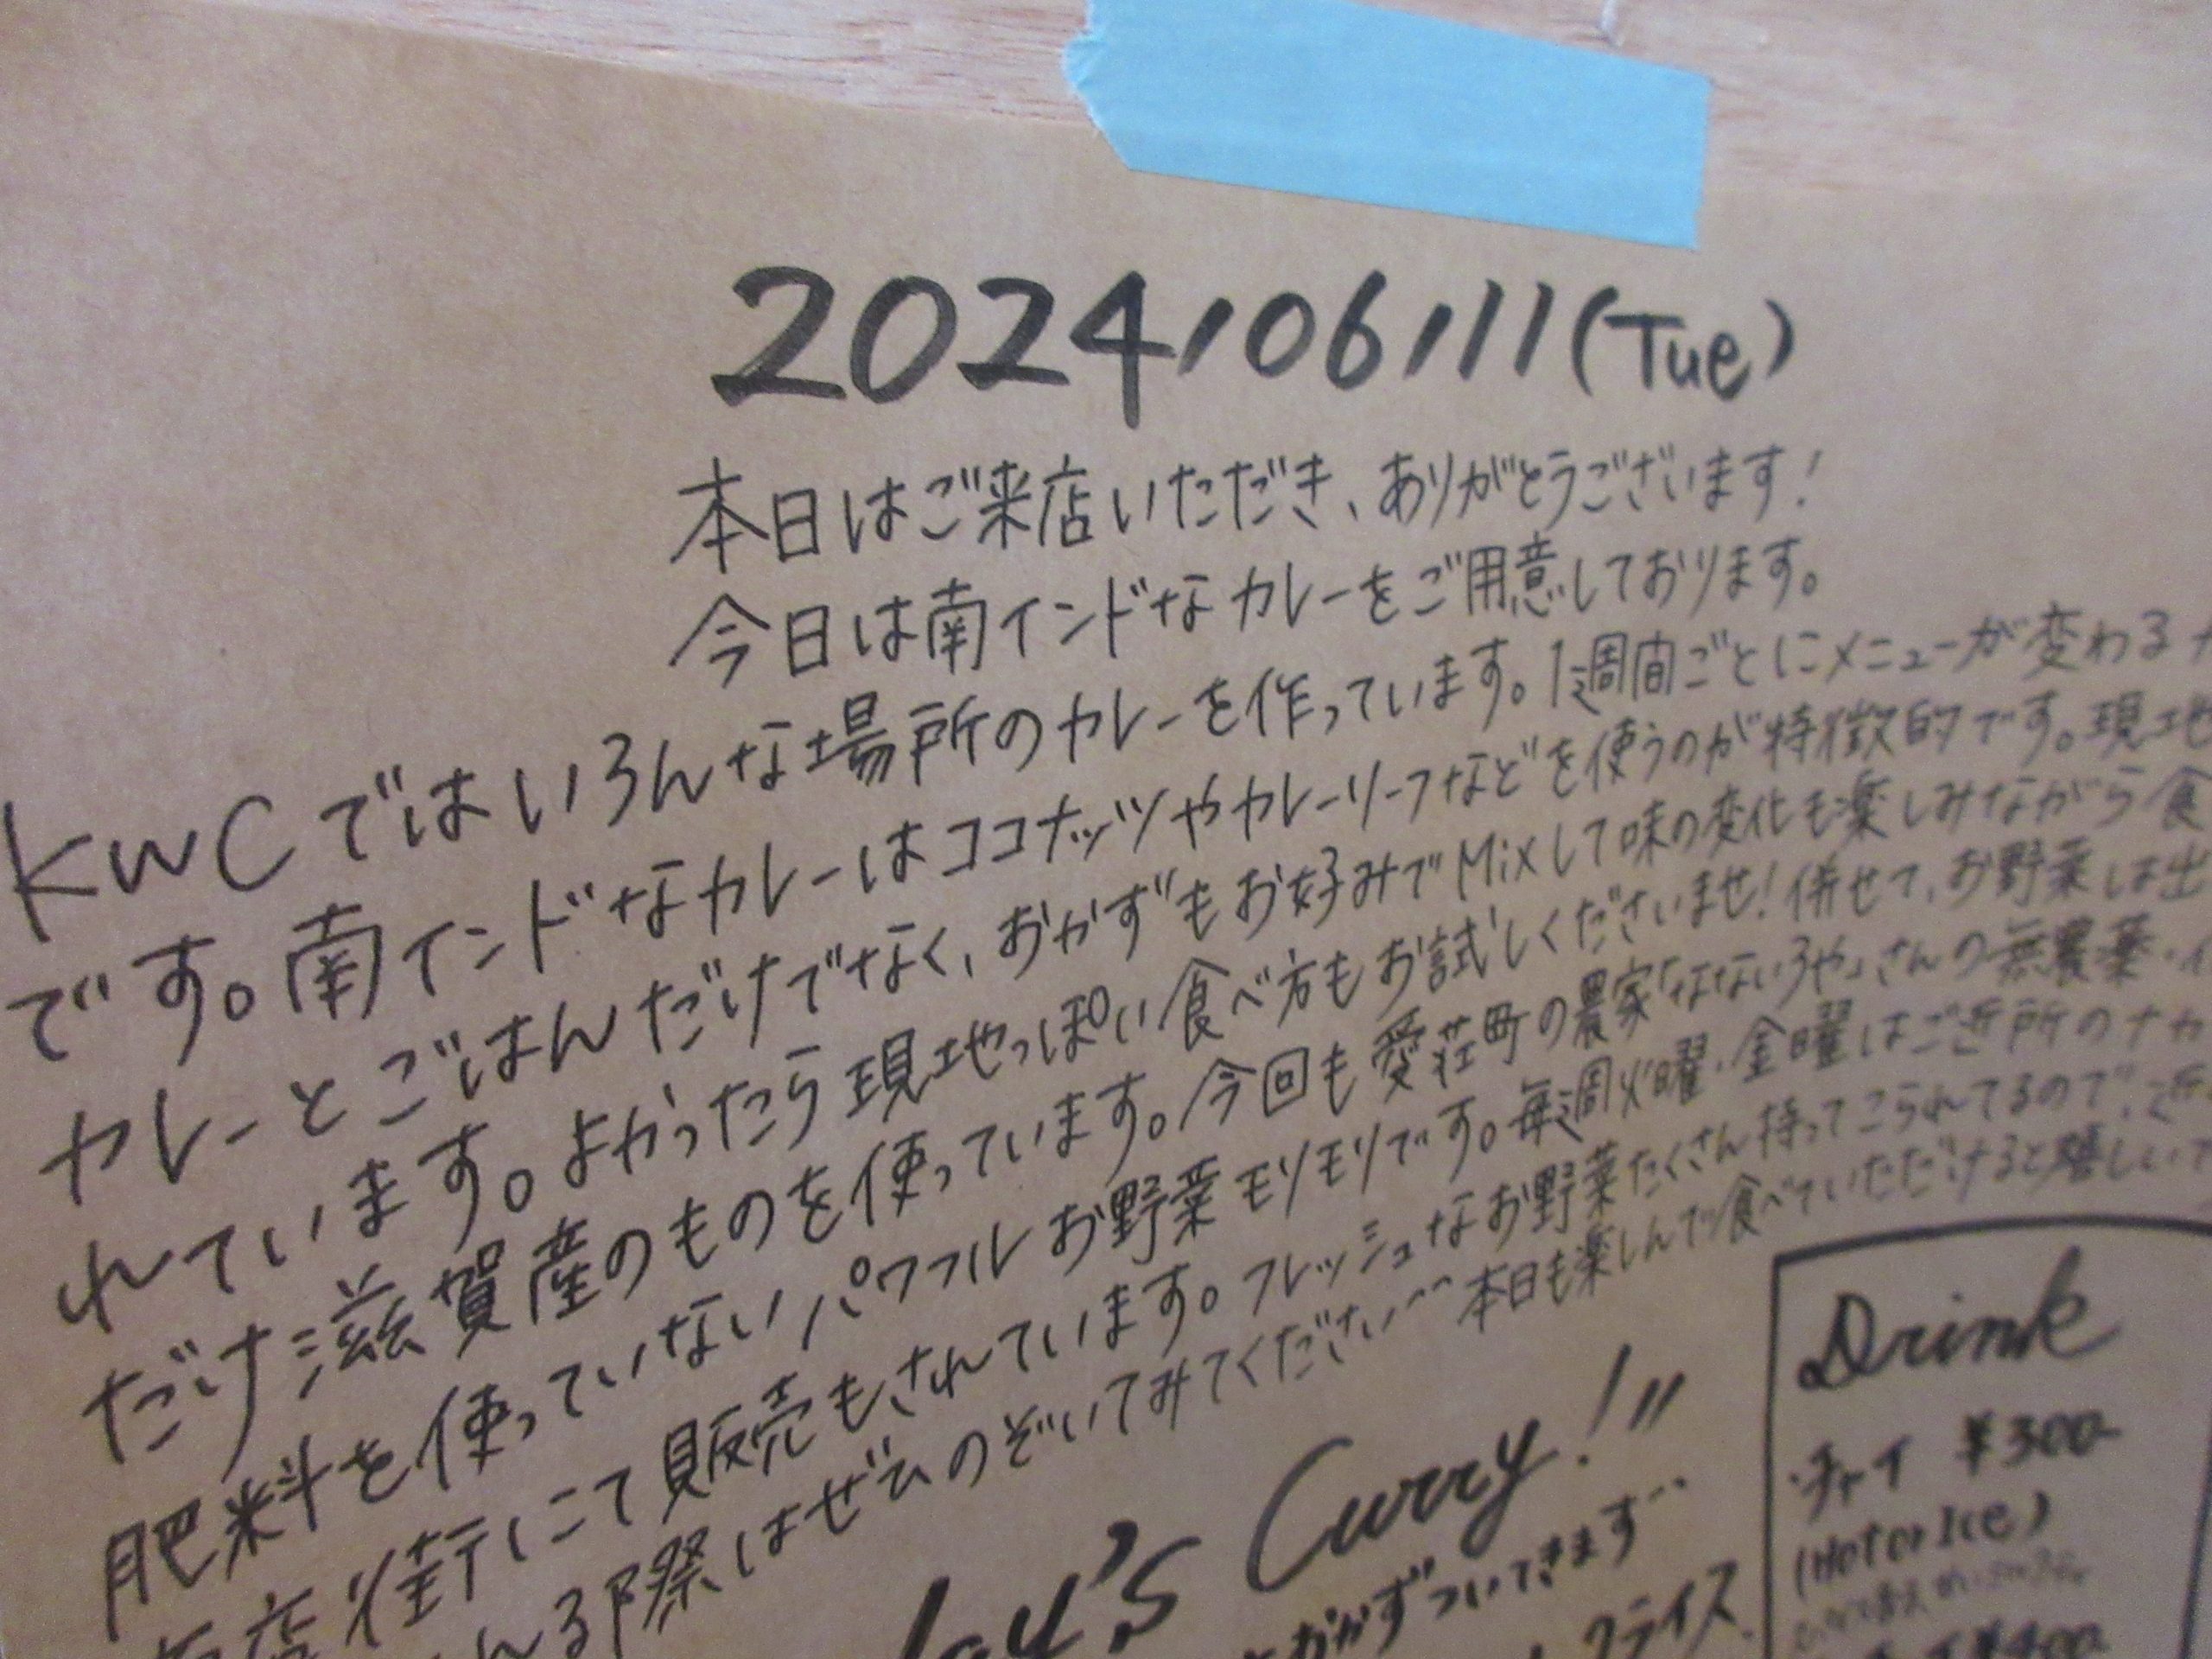 2024/06/11(Tue)
本日はご来店いただき、ありがとうございます!
今日は南インドなカレーをご用意しております。
KWCではいろんな場所のカレーを作っています。1週間ごとにメニューが変わる
です。南インドなカレーはココナッツやカレーリーフなどを使うのが特徴的です。現地
カレーとごはんだけでなく、おかずもお好みでMixして味の変化も楽しみながら食
れています。よかったら現地っぽい食べ方もお試しくださいませ!併せて、お野菜は出
だけ滋賀産のものを使っています。今回も愛荘町の農家「なないろや」さんの無農薬・
肥料を使っていないパワフルお野菜モリモリです。毎週火曜・金曜はご近所のナカ
店街にて販売もされています。フレッシュなお野菜たくさん持ってこられてるので、近
る際はぜひのぞいてみてください^^本日も楽しんで食べていただけると嬉しいで
Curry!!
おかずついてきます
ライス
Drink
・チャイ ¥300-
(Hot or Ice)
¥400-